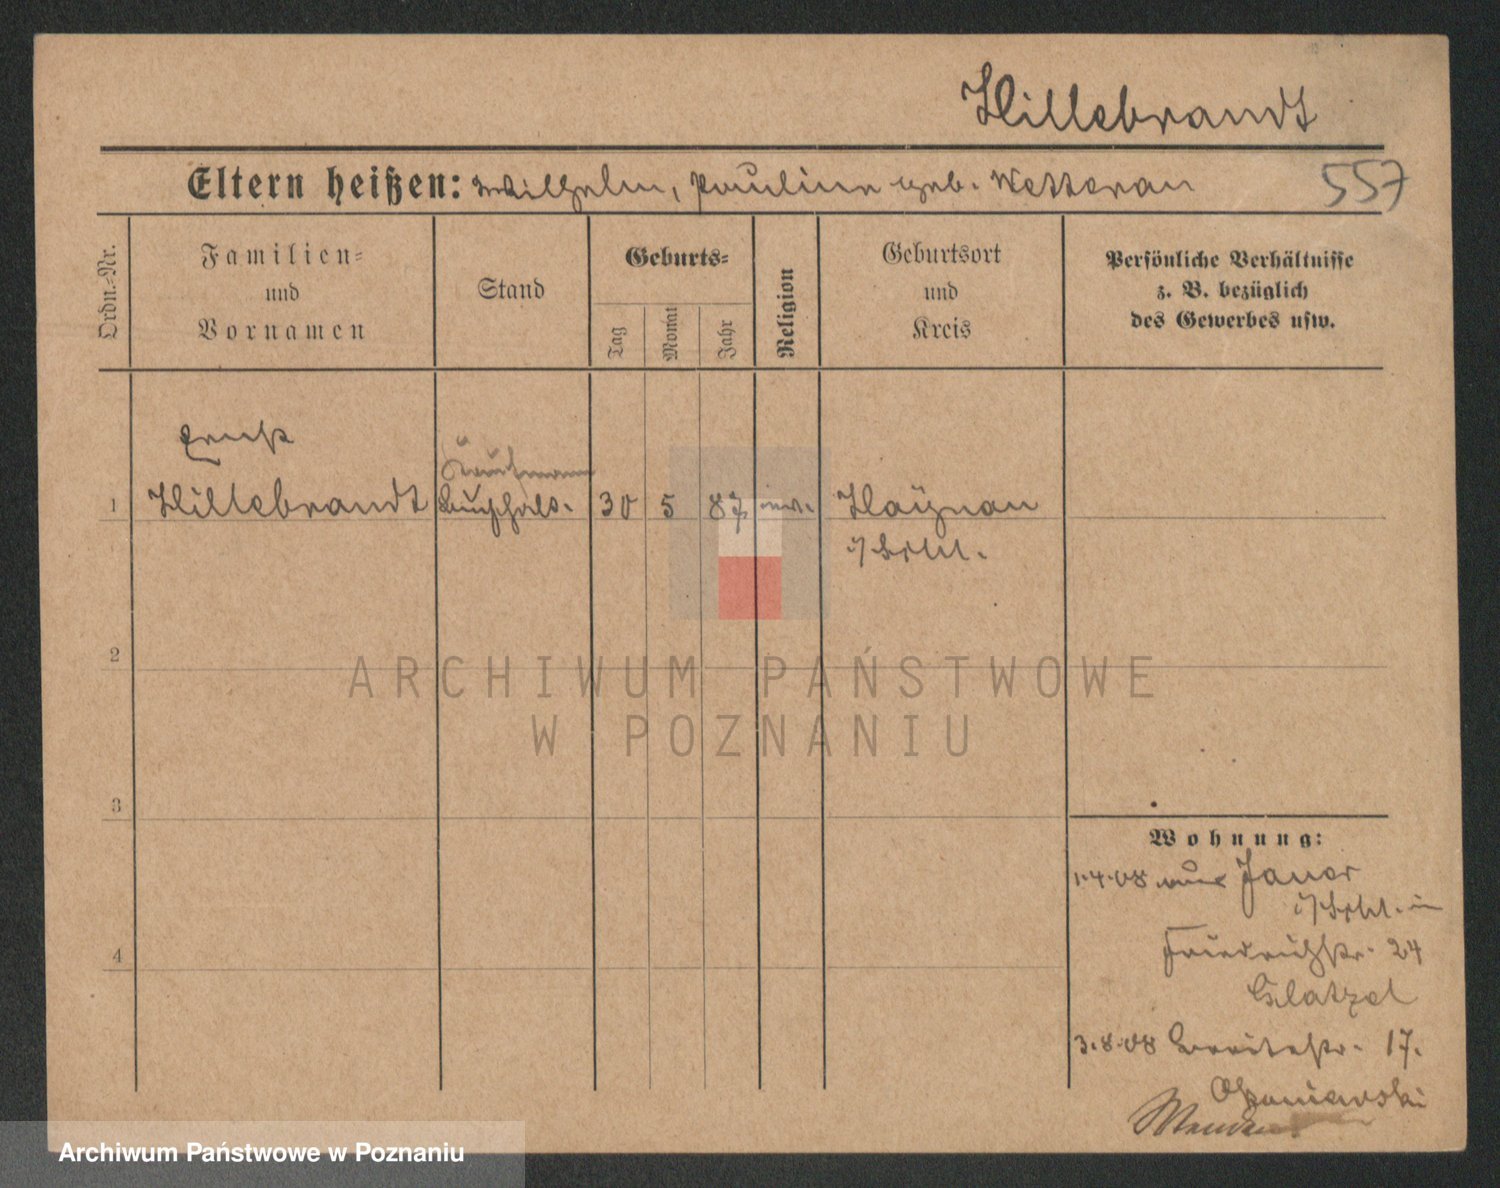 Hillebrandt
Eltern heißen: Wilhelm, Pauline geb. Wetteran
557
Ordn.-Nr.
Familien-
und
Vornamen
Stand
Geburts-
Tag
Monat
Jahr
Religion
Geburtsort
und
Kreis
Persönliche Verhältnisse
z. B. bezüglich
des Gewerbes usw.
Ernst
Kaufmann
1 Hillebrandt Buchhalt. 30 5 87 ev. Haynau
i/Schl.
2
3
4
Wohnung:
1.4.08 aus Jauer
i/Schl. in
Friedrichstr. 24
Glatzel
3.8.08 Breitestr. 17.
ARCHIWUM PAŃSTWOWE
W POZNANIU
Archiwum Państwowe w Poznaniu